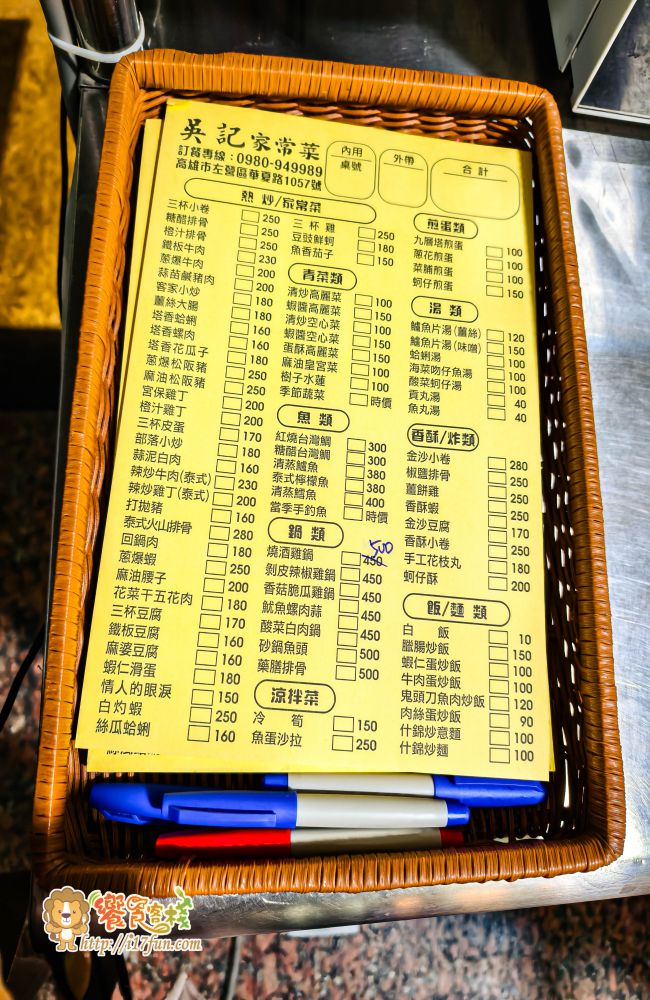 吳記家常菜
訂餐專線：0980-949989
高雄市左營區華夏路1057號
內用
桌號
外帶
合計
熱炒/家常菜
三杯小卷 250
糖醋排骨 250
橙汁排骨 250
鐵板牛肉 230
蔥爆牛肉 200
蒜苗鹹豬肉 200
客家小炒 180
薑絲大腸 180
塔香蛤蜊 160
塔香螺肉 160
塔香花瓜子 180
蔥爆松阪豬 250
麻油松阪豬 250
宮保雞丁 200
橙汁雞丁 200
三杯皮蛋 170
部落小炒 180
蒜泥白肉 160
辣炒牛肉(泰式) 230
辣炒雞丁(泰式) 200
打拋豬 160
泰式火山排骨 280
回鍋肉 180
蔥爆蝦 250
麻油腰子 200
花菜干五花肉 180
三杯豆腐 170
鐵板豆腐 160
麻婆豆腐 160
蝦仁滑蛋 180
情人的眼淚 150
白灼蝦 250
絲瓜蛤蜊 160
三杯雞 250
豆豉鮮蚵 180
魚香茄子 150
青菜類
清炒高麗菜 100
蝦醬高麗菜 150
清炒空心菜 100
蝦醬空心菜 150
蛋酥高麗菜 150
麻油皇宮菜 100
樹子水蓮 100
季節蔬菜 時價
魚類
紅燒台灣鯛 300
糖醋台灣鯛 300
清蒸鱸魚 380
泰式檸檬魚 380
清蒸鱈魚 400
當季手釣魚 時價
鍋類
燒酒雞鍋 450 500
剝皮辣椒雞鍋 450
香菇脆瓜雞鍋 450
魷魚螺肉蒜 450
酸菜白肉鍋 450
砂鍋魚頭 500
藥膳排骨 500
涼拌菜
冷筍 150
魚蛋沙拉 250
煎蛋類
九層塔煎蛋 100
蔥花煎蛋 100
菜脯煎蛋 100
蚵仔煎蛋 150
湯類
鱸魚片湯(薑絲) 120
鱸魚片湯(味噌) 150
蛤蜊湯 100
海菜吻仔魚湯 100
酸菜蚵仔湯 100
貢丸湯 40
魚丸湯 40
香酥/炸類
金沙小卷 280
椒鹽排骨 250
薑餅雞 250
香酥蝦 250
金沙豆腐 170
香酥小卷 250
手工花枝丸 180
蚵仔酥 200
飯/麵類
白飯 10
臘腸炒飯 150
蝦仁蛋炒飯 100
牛肉蛋炒飯 100
鬼頭刀魚肉炒飯 120
肉絲蛋炒飯 90
什錦炒意麵 100
什錦炒麵 100
饗食客棧
http://i17fun.com